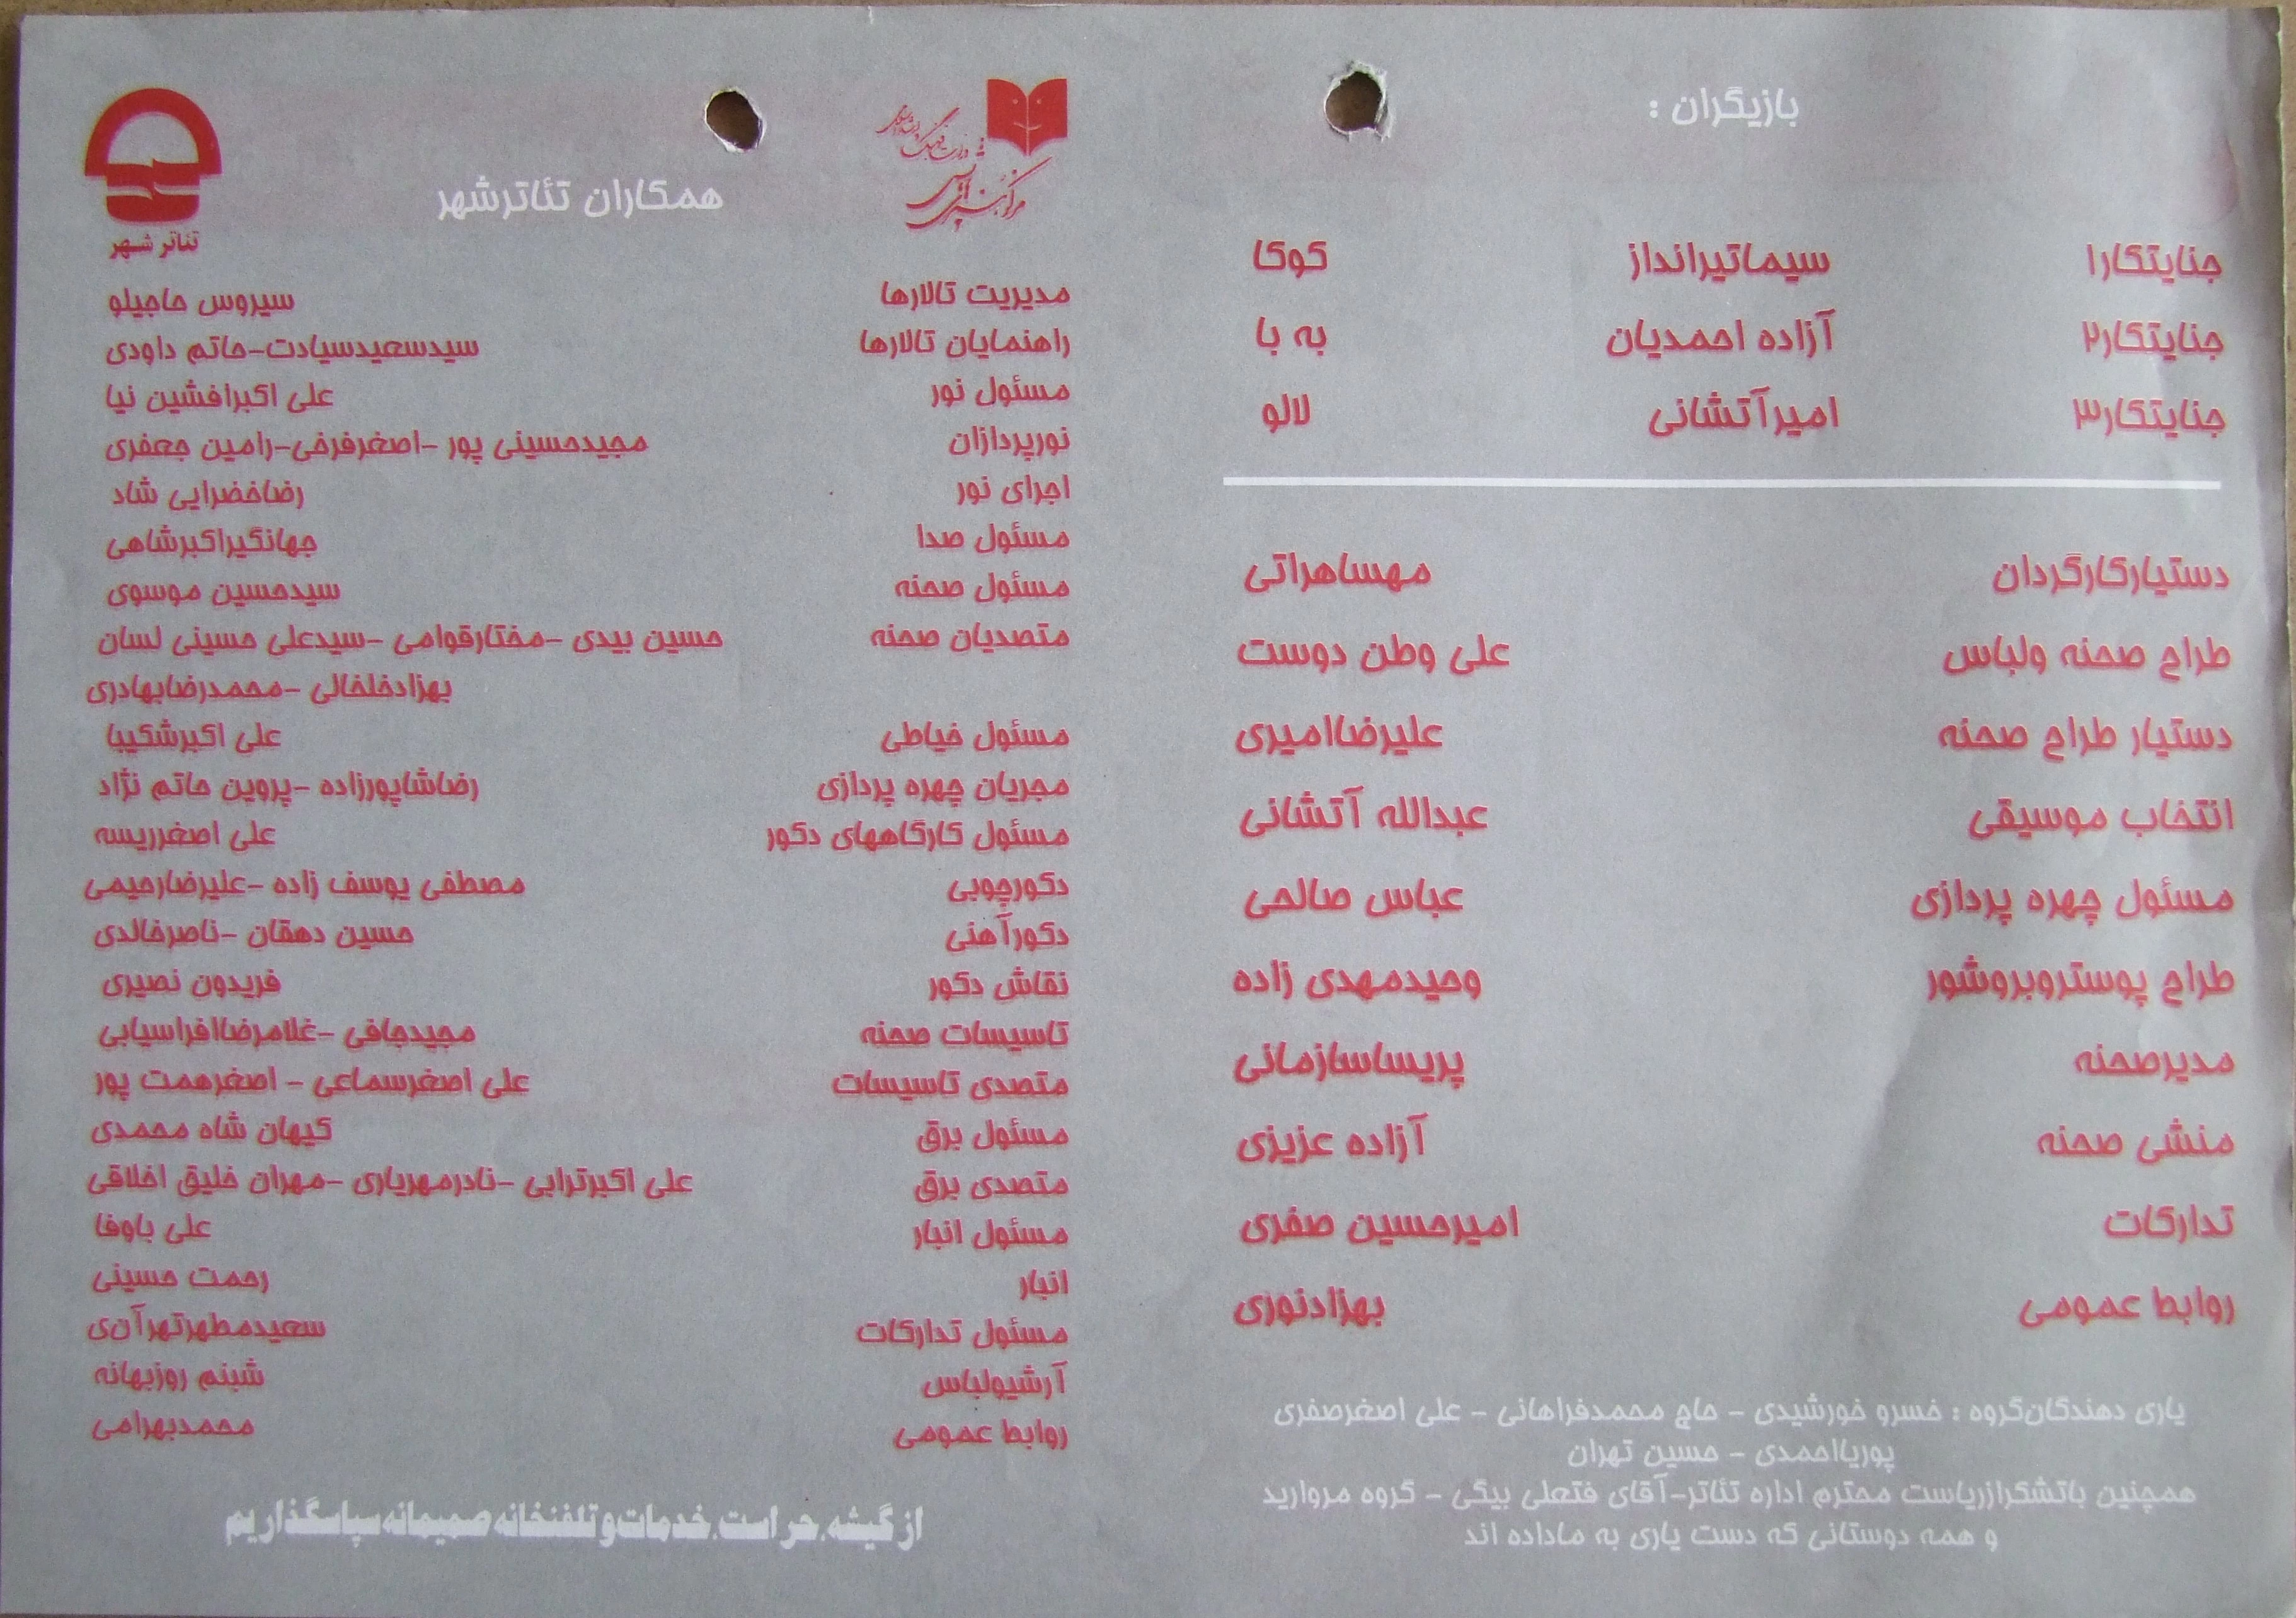 بازیگران :
جنایتکار۱ سیماتیرانداز کوکا
جنایتکار۲ آزاده احمدیان به با
جنایتکار۳ امیرآتشانی لالو
دستیارکارگردان مهساهراتی
طراح صحنه ولباس علی وطن دوست
دستیار طراح صحنه علیرضاامیری
انتخاب موسیقی عبدالله آتشانی
مسئول چهره پردازی عباس صالحی
طراح پوستروبروشور وحیدمهدی زاده
مدیرصحنه پریساسازمانی
منشی صحنه آزاده عزیزی
تدارکات امیرحسین صفری
روابط عمومی بهزادنوری
یاری دهندگان‌گروه : خسرو خورشیدی - حاج محمدفراهانی - علی اصغرصفری
پوریااحمدی - حسین تهران
همچنین باتشکرازریاست محترم اداره تئاتر-آقای فتعلی بیگی - گروه مروارید
و همه دوستانی که دست یاری به ماداده اند
مرکز هنرهای نمایشی
تئاتر شهر
همکاران تئاترشهر
مدیریت تالارها سیروس حاجیلو
راهنمایان تالارها سیدسعیدسیادت-حاتم داودی
مسئول نور علی اکبرافشین نیا
نورپردازان مجیدحسینی پور -اصغرفرخی-رامین جعفری
اجرای نور رضاخضرایی شاد
مسئول صدا جهانگیراکبرشاهی
مسئول صحنه سیدحسین موسوی
متصدیان صحنه حسین بیدی -مختارقوامی -سیدعلی حسینی لسان
بهزادخلخالی -محمدرضابهادری
مسئول خیاطی علی اکبرشکیبا
مجریان چهره پردازی رضاشاپورزاده -پروین حاتم نژاد
مسئول کارگاههای دکور علی اصغرریسه
دکورچوبی مصطفی یوسف زاده -علیرضارحیمی
دکورآهنی حسین دهقان -ناصرخالدی
نقاش دکور فریدون نصیری
تاسیسات صحنه مجیدجافی -غلامرضاافراسیابی
متصدی تاسیسات علی اصغرسماعی - اصغرهمت پور
مسئول برق کیهان شاه محمدی
متصدی برق علی اکبرترابی -نادرمهریاری -مهران خلیق اخلاقی
مسئول انبار علی باوفا
انبار رحمت حسینی
مسئول تدارکات سعیدمطهرتهرآن‌ی
آرشیولباس شبنم روزبهانه
روابط عمومی محمدبهرامی
از گیشه،حراست،خدمات‌وتلفنخانه صمیمانه‌سپاسگذاریم